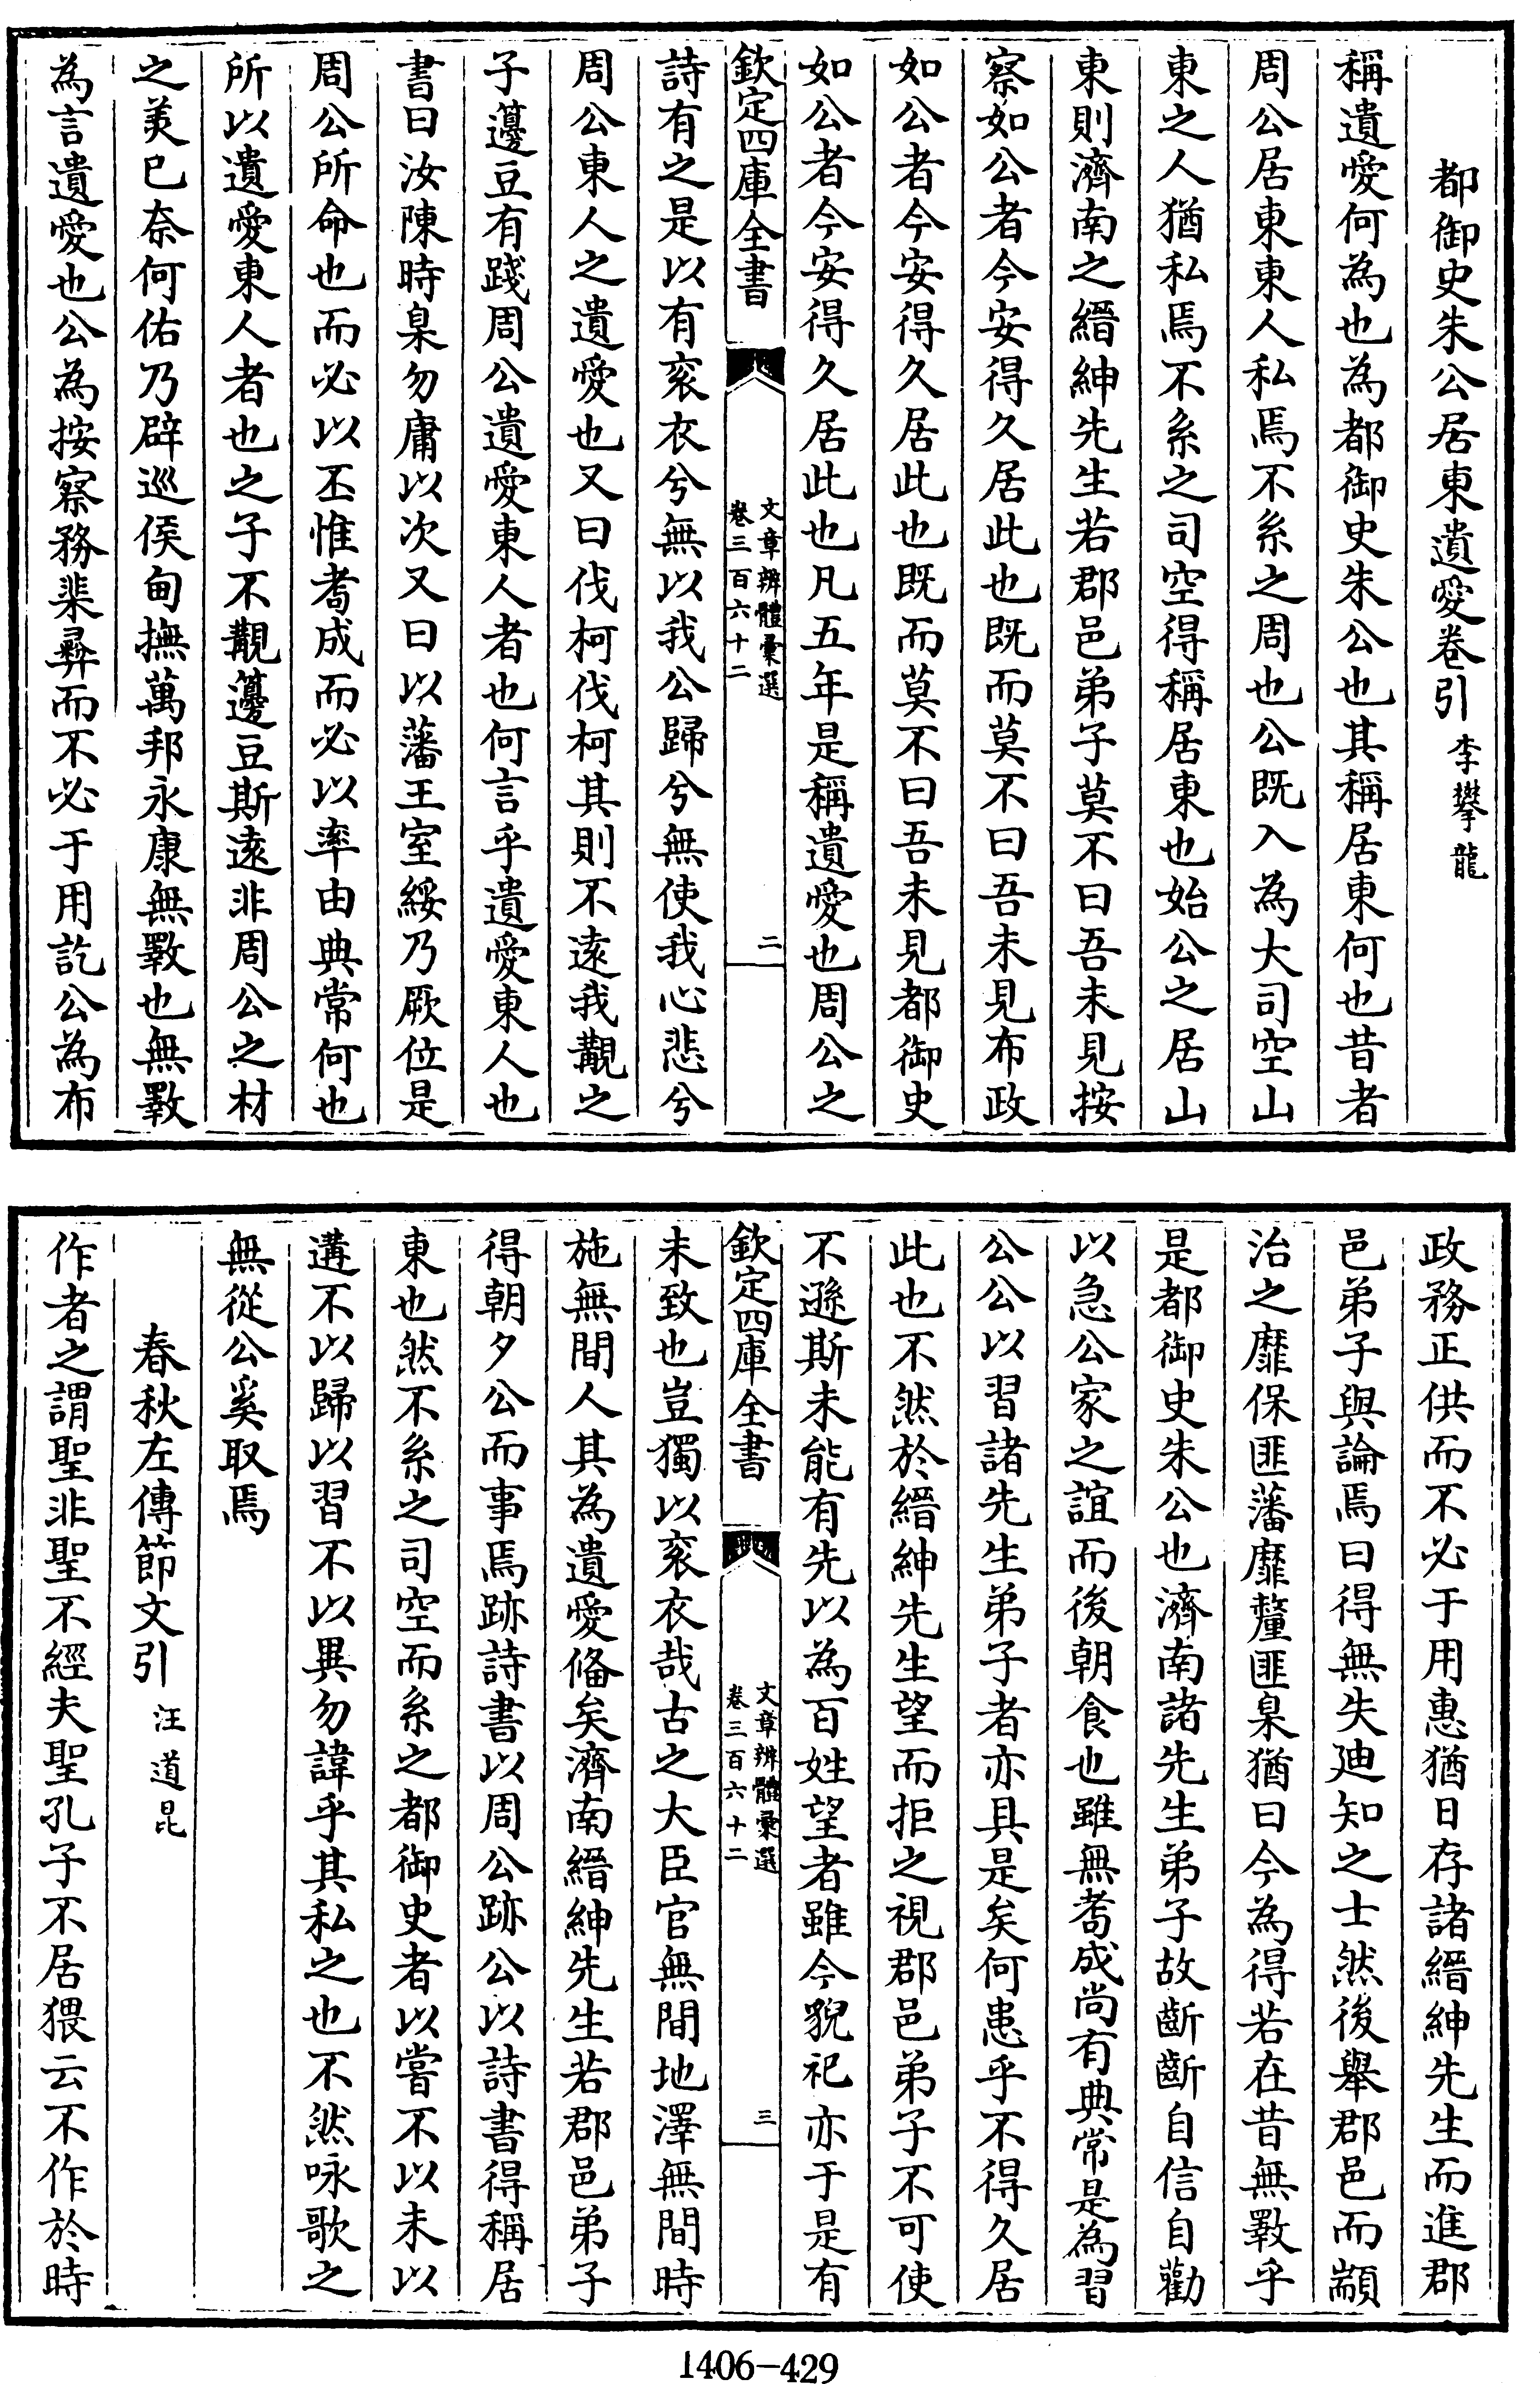 都御史朱公居東遺愛卷引 李攀龍
稱遺愛何為也為都御史朱公也其稱居東何也昔者
周公居東東人私焉不系之周也公既入為大司空山
東之人猶私焉不系之司空得稱居東也始公之居山
東則濟南之縉紳先生若郡邑弟子莫不曰吾未見按
察如公者今安得久居此也既而莫不曰吾未見布政
如公者今安得久居此也既而莫不曰吾未見都御史
如公者今安得久居此也凡五年是稱遺愛也周公之
欽定四庫全書
文章辨體彙選
卷三百六十二
二
詩有之是以有衮衣兮無以我公歸兮無使我心悲兮
周公東人之遺愛也又曰伐柯伐柯其則不遠我覯之
子籩豆有踐周公遺愛東人者也何言乎遺愛東人也
書曰汝陳時臬勿庸以次又曰以藩王室綏乃厥位是
周公所命也而必以丕惟耇成而必以率由典常何也
所以遺愛東人者也之子不覯籩豆斯遠非周公之材
之美已奈何佑乃辟巡侯甸撫萬邦永康無斁也無斁
為言遺愛也公為按察務棐彛而不必于用訖公為布
政務正供而不必于用惠猶日存諸縉紳先生而進郡
邑弟子與論焉曰得無失廸知之士然後舉郡邑而顓
治之靡保匪藩靡釐匪臬猶曰今為得若在昔無斁乎
是都御史朱公也濟南諸先生弟子故齗齗自信自勸
以急公家之誼而後朝食也雖無耇成尚有典常是為習
公公以習諸先生弟子者亦具是矣何患乎不得久居
此也不然於縉紳先生望而拒之視郡邑弟子不可使
不遜斯未能有先以為百姓望者雖今貌祀亦于是有
欽定四庫全書
文章辨體彙選
卷三百六十二
三
未致也豈獨以衮衣哉古之大臣官無間地澤無間時
施無間人其為遺愛俻矣濟南縉紳先生若郡邑弟子
得朝夕公而事焉跡詩書以周公跡公以詩書得稱居
東也然不系之司空而系之都御史者以嘗不以未以
遘不以歸以習不以異勿諱乎其私之也不然咏歌之
無從公奚取焉
春秋左傳節文引 汪道昆
作者之謂聖非聖不經夫聖孔子不居猥云不作於時
1406-429